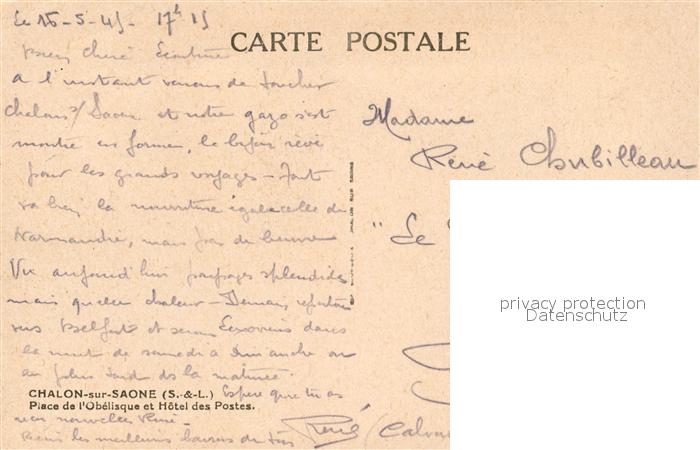 Le 16-5-45- 17h 15
CARTE POSTALE
Bien chère
A l'instant venons de toucher
Chalons s/ Saone et notre gazo s'est
montré en forme, le bijou rêvé
pour les grands voyages - Tout
va bien la nourriture égale celle de
Normandie, mais pas de beurre
Vu aujourd'hui paysages splendides
mais quelle chaleur - Demain repartons
vers Belfort et serons dans
la nuit de samedi a Dimanche ou
au plus tard ds la matinée.
CHALON-sur-SAONE (S.-&-L.)
Place de l'Obélisque et Hôtel des Postes.
Espère que tu as
nouvelles René -
Reçois les meilleurs baisers de ton
René
Madame
René Chubilleau
"Le
(Calva
privacy protection
Datenschutz